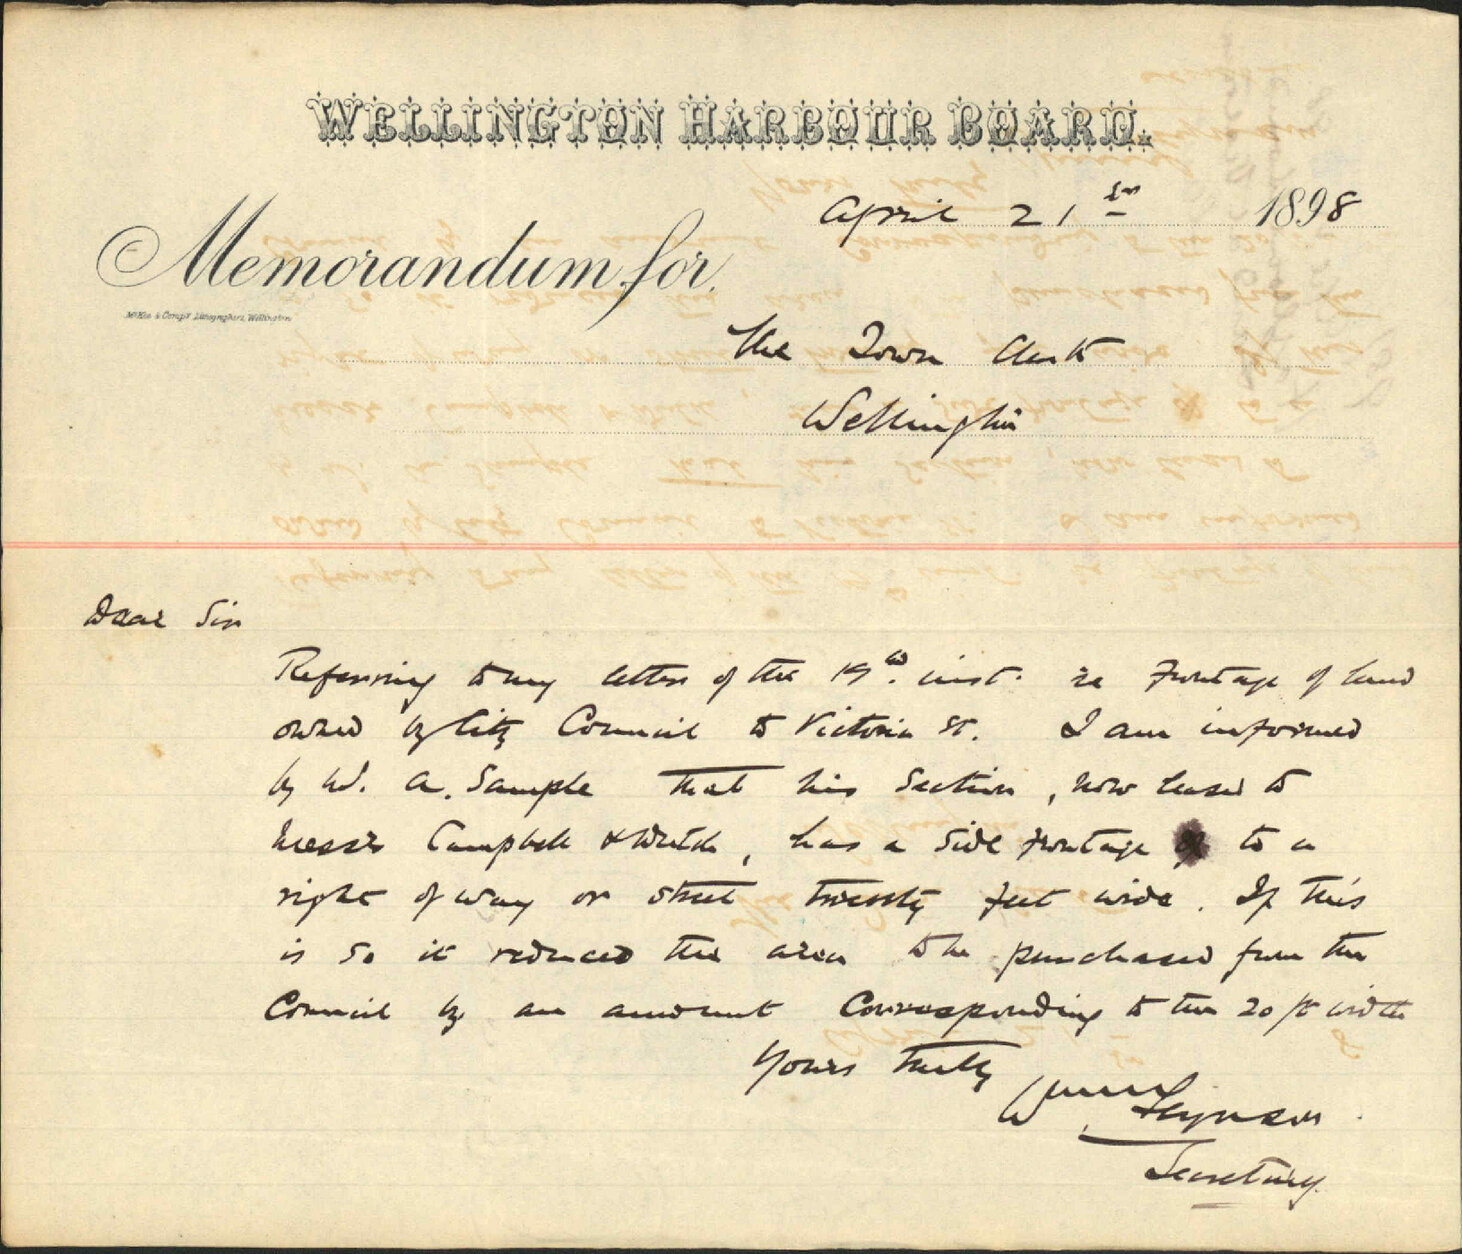 WELLINGTON HARBOUR BOARD.
April 21st 1898
Memorandum for
McKee & Comp'y Lithographers, Wellington
The Town Clerk
Wellington
Dear Sir
Referring to my letter of the 19th. inst. re Frontage of land
owned by City Council to Victoria St. I am informed
by W. A. Sample that his Section, now leased to
Messrs Campbell &, has a side frontage to a
right of way or street twenty feet wide. If this
is so it reduced the area to be purchased from the
Council by an amount Corresponding to the 20 ft width
Yours truly
Wm Ferguson
Secretary.